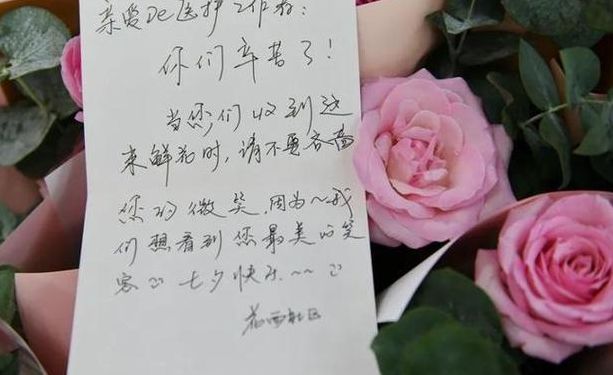 亲爱De医护工作者：
你们辛苦了！
当您们收到这
束鲜花时，请不要吝啬
您的微笑，因为~我
们想看到您最美的笑
容☺七夕快乐~~☺
花西社区